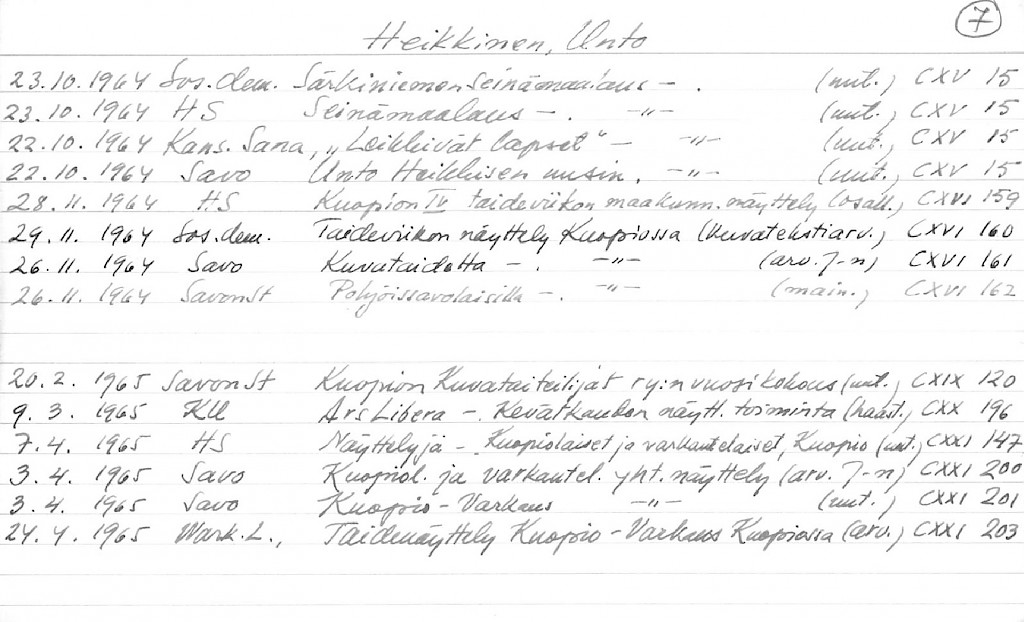 7
Heikkinen, Unto
23.10.1964 Sos.dem. Särkiniemen seinämaalaus - . (uut.) CXV 15
23.10.1964 HS Seinämaalaus - . -"- (uut.) CXV 15
22.10.1964 Kans. Sana, "Leikkivät lapset" - -"- (uut.) CXV 15
22.10.1964 Savo Unto Heikkisen uusin . -"- (uut.) CXV 15
28.11.1964 HS Kuopion IV taideviikon maakunn. näyttely (osall.) CXVI 159
29.11.1964 Sos.dem. Taideviikon näyttely Kuopiossa (kuvatekstiarv.) CXVI 160
26.11.1964 Savo Kuvataidetta - . -"- (arv. J-n) CXVI 161
26.11.1964 SavonSt Pohjoissavolaisilla - . -"- (main.) CXVI 162
20.2. 1965 SavonSt Kuopion Kuvataiteilijat ry:n vuosikokous (uut.) CXIX 120
9.3. 1965 KU Ars Libera - Kevätkauden näytt. toiminta (haast.) CXX 196
7.4. 1965 HS Näyttelyjä - Kuopiolaiset ja varkautelaiset, Kuopio (uut.) CXXI 147
3.4. 1965 Savo Kuopiol. ja varkautel. yht. näyttely (arv. J-n) CXXI 200
3.4. 1965 Savo Kuopio - Varkaus -"- (uut.) CXXI 201
24.4. 1965 Wark.L., Taidenäyttely Kuopio - Varkaus Kuopiossa (arv.) CXXI 203